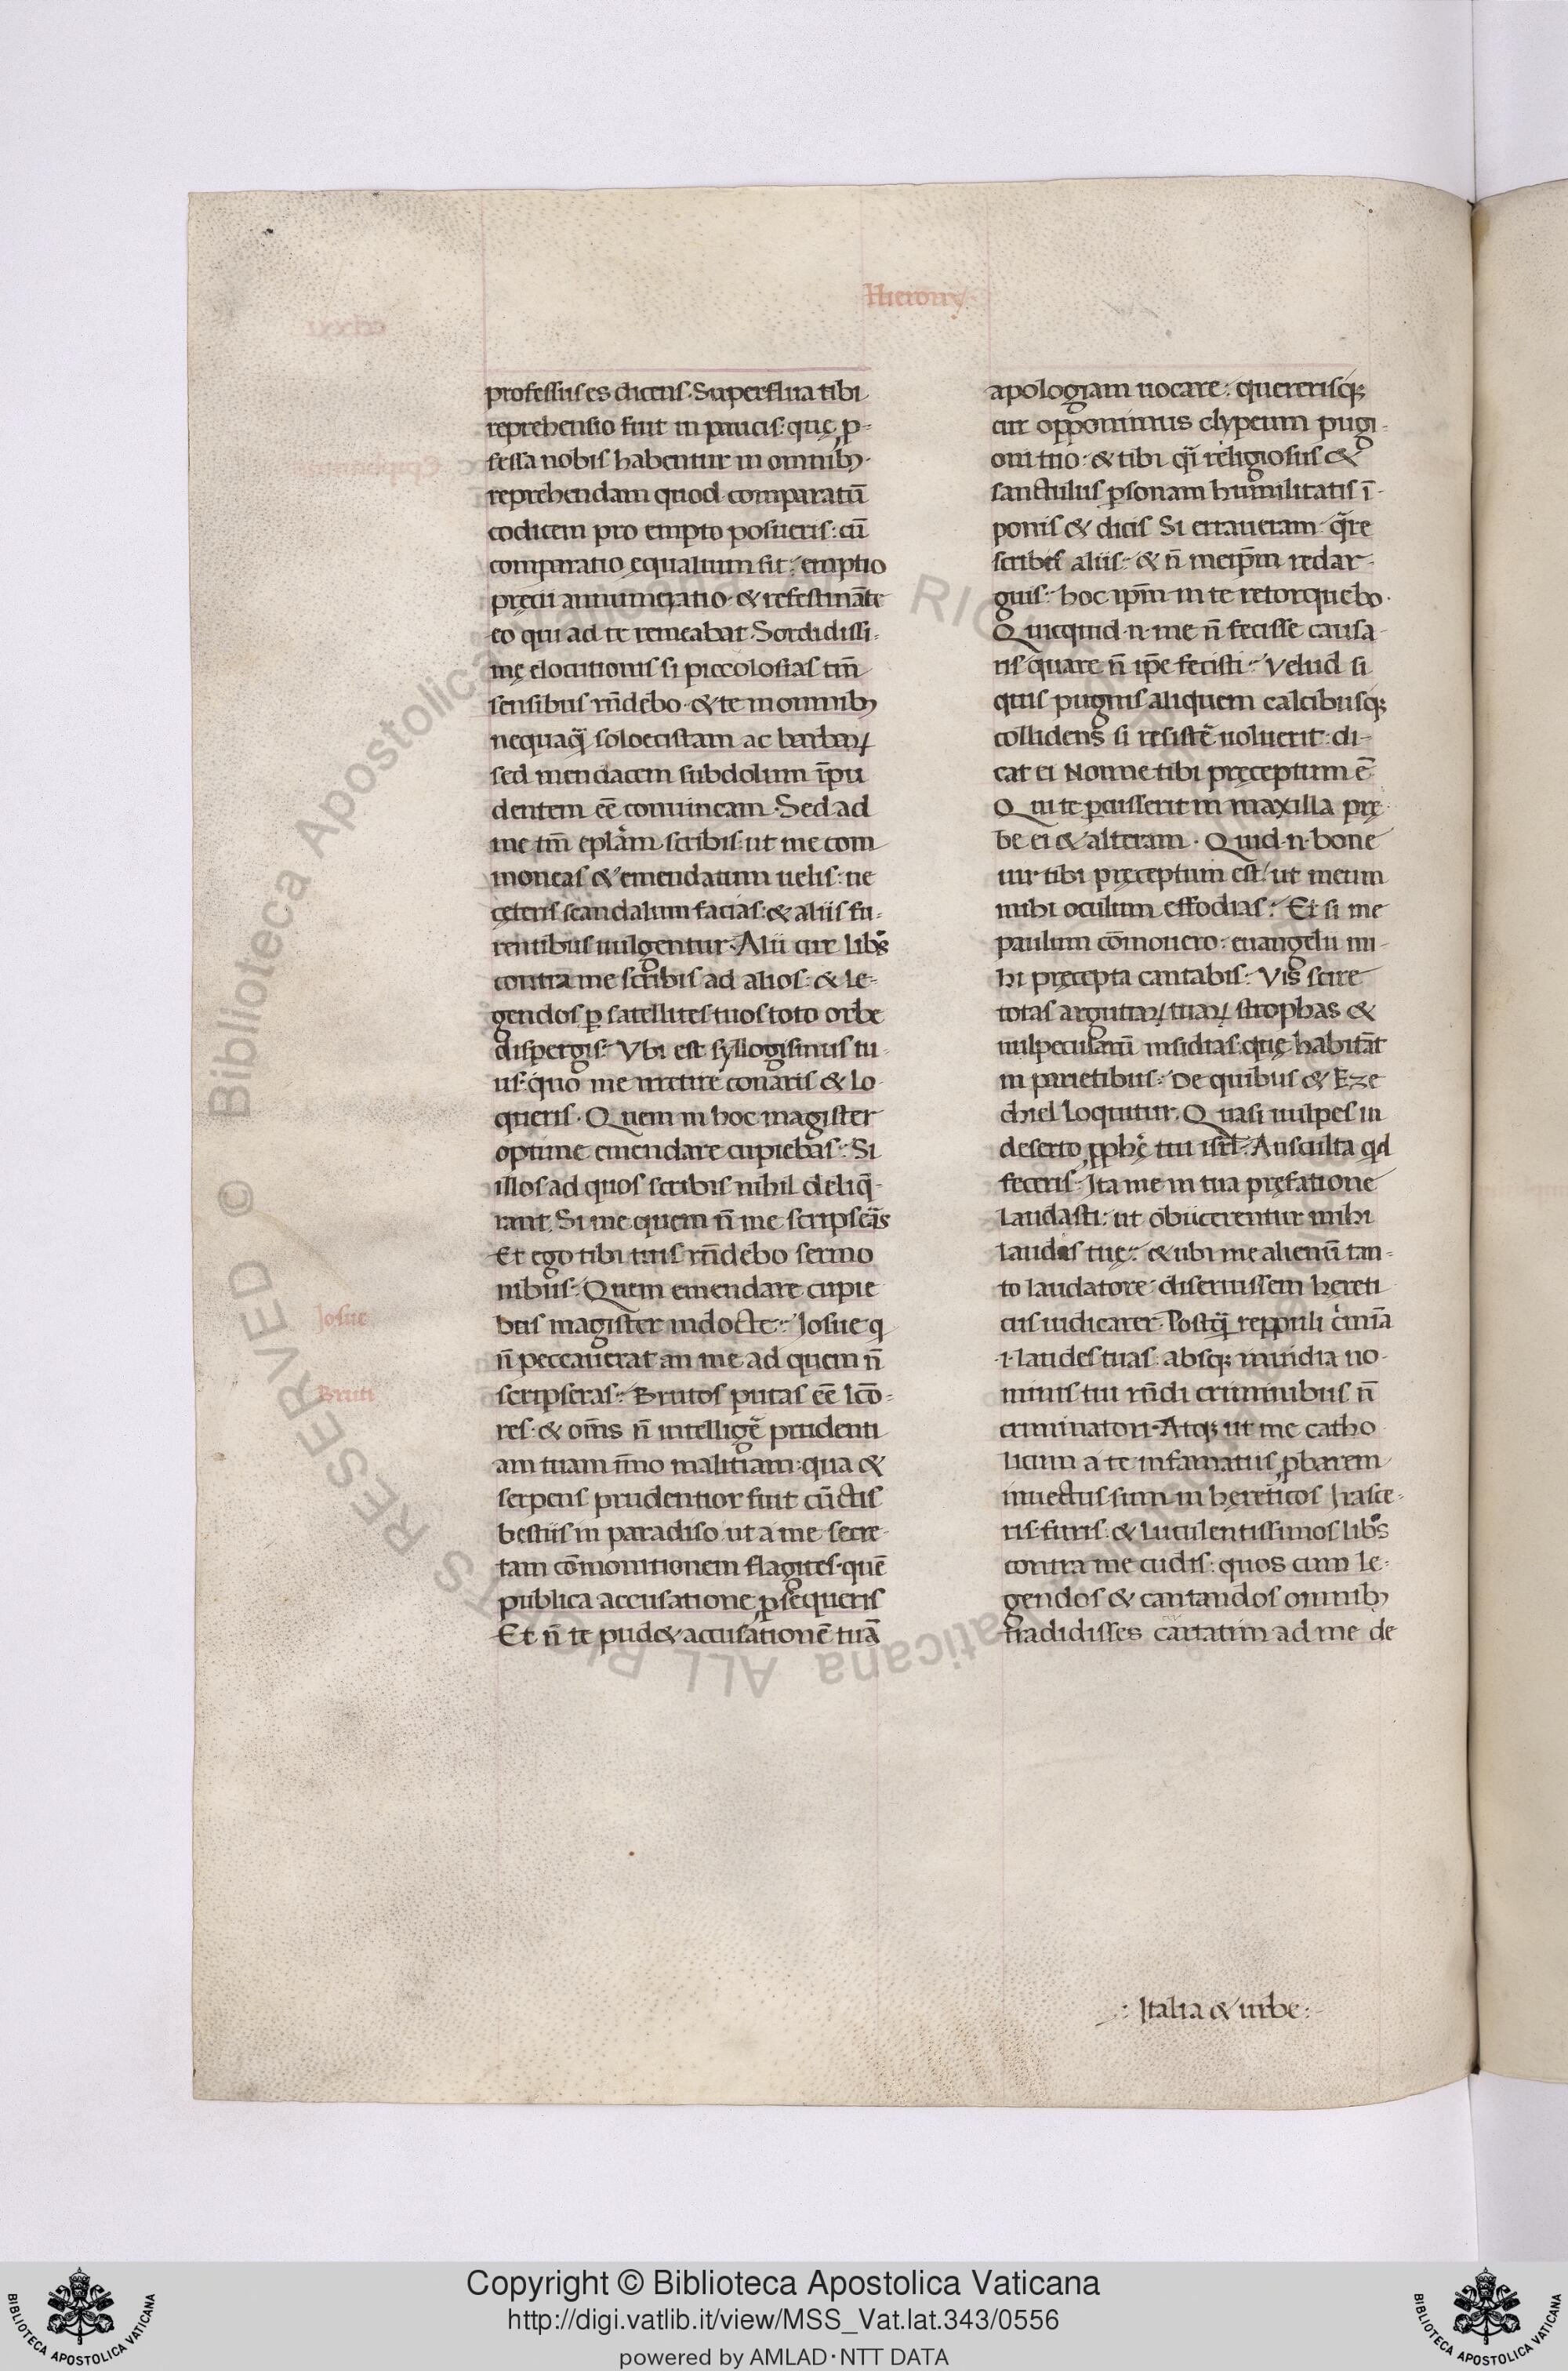 Hierony.
professus es dicens. Superflua tibi
reprehensio fuit in paucis: quę p̱-
fessa nobis habentur in omnib;.
reprehendam quod comparatū
codicem pro empto posueris: cū
comparatio ęqualium sit: emptio
pręcii annumeratio. & refestināte
eo qui ad te remeabat. Sordidissi-
mę elocutionis si piccolosias tm̄
sensibus rn̄debo. & te in omnib;
nequaq̄ soloecistam ac barbaꝝ
sed mendacem subdolum īpu
dentem eē conuincam. Sed ad
me tm̄ eplām scribis: ut me com
moneas & emendatum uelis: ne
cęteris scandalum facias: & aliis fu-
rentibus uulgentur. Alii cur libōs
contra me scribis ad alios: & le-
gendos ꝑ satellites tuos toto orbe
dispergis: Vbi est syllogismus tu-
us: quo me irretire conaris & lo-
queris. Quem in hoc magister
optime emendare cupiebas: Si
illos ad quos scribis nihil deliq̄-
rant. Si me quem n̄ me scripserās
Et ego tibi tuis rn̄debo sermo
nibus: Quem emendare cupie
bas magister indocte: Josue q
n̄ peccauerat an me ad quem n̄
scripseras: Brutos putas eē lcō-
res: & om̄s n̄ intelligē prudenti
am tuam īmo malitiam: qua &
serpens prudentior fuit cūctis
bestiis in paradiso ut a me secre-
tam cōmonitionem flagites. quē
publica accusatione ꝑsequeris
Et n̄ te pud& accusationē tuā
Josue
Bruti
apologiam uocare: quererisq;
cur opponimus clypeum pugi-
oni tuo: & tibi q̄i religiosus &
sanctulus ꝑsonam humilitatis ī-
ponis & dicis Si erraueram q̄re
scribis aliis: & n̄ meip̄m redar-
guis: hoc ip̄m in te retorquebo.
Quicquid .n. me n̄ fecisse causa-
ris quare n̄ ip̄e fecisti: Velud si
quis pugnis aliquem calcibusq;
collidens si resistē uoluerit: di-
cat ei Nonne tibi pręceptum ē
Qui te ꝑcusserit in maxilla prę-
be ei & alteram. Quid .n. bone
uir tibi pręceptum est/ ut meum
mihi oculum effodias: Et si me
paulum cōmouero: euangelii mi-
hi pręcepta cantabis: Vis scire
totas argutiaꝝ tuaꝝ strophas &
uulpecularū insidias. quę habitāt
in parietibus: De quibus & Eze
chiel loquutur. Quasi uulpes in
deserto ꝓphę tui isrl̄: Ausculta qd
feceris: Ita me in tua pręfatione
laudasti: ut obiicerentur mihi
laudes tuę: & ubi me alienū tan-
to laudatore: disertissem hęreti
cus iudicarer. Postq̄ reppuli c̓minā
.i. laudes tuas. absq; inuidia no-
minis tui rn̄di criminibus n̄
criminatori. Atq; ut me catho
licum a te infamatus ꝓbarem
inuectus sum in hęreticos Irasce-
ris. furis. & luculentissimos libōs
contra me cudis: quos cum le-
gendos & cantandos omnib;
tradidisses cartatim ad me de
.: Italia & urbe :.
Copyright © Biblioteca Apostolica Vaticana
http://digi.vatlib.it/view/MSS_Vat.lat.343/0556
powered by AMLAD · NTT DATA
BIBLIOTECA APOSTOLICA VATICANA
BIBLIOTECA APOSTOLICA VATICANA
© Biblioteca Apostolica Vaticana ALL RIGHTS RESERVED